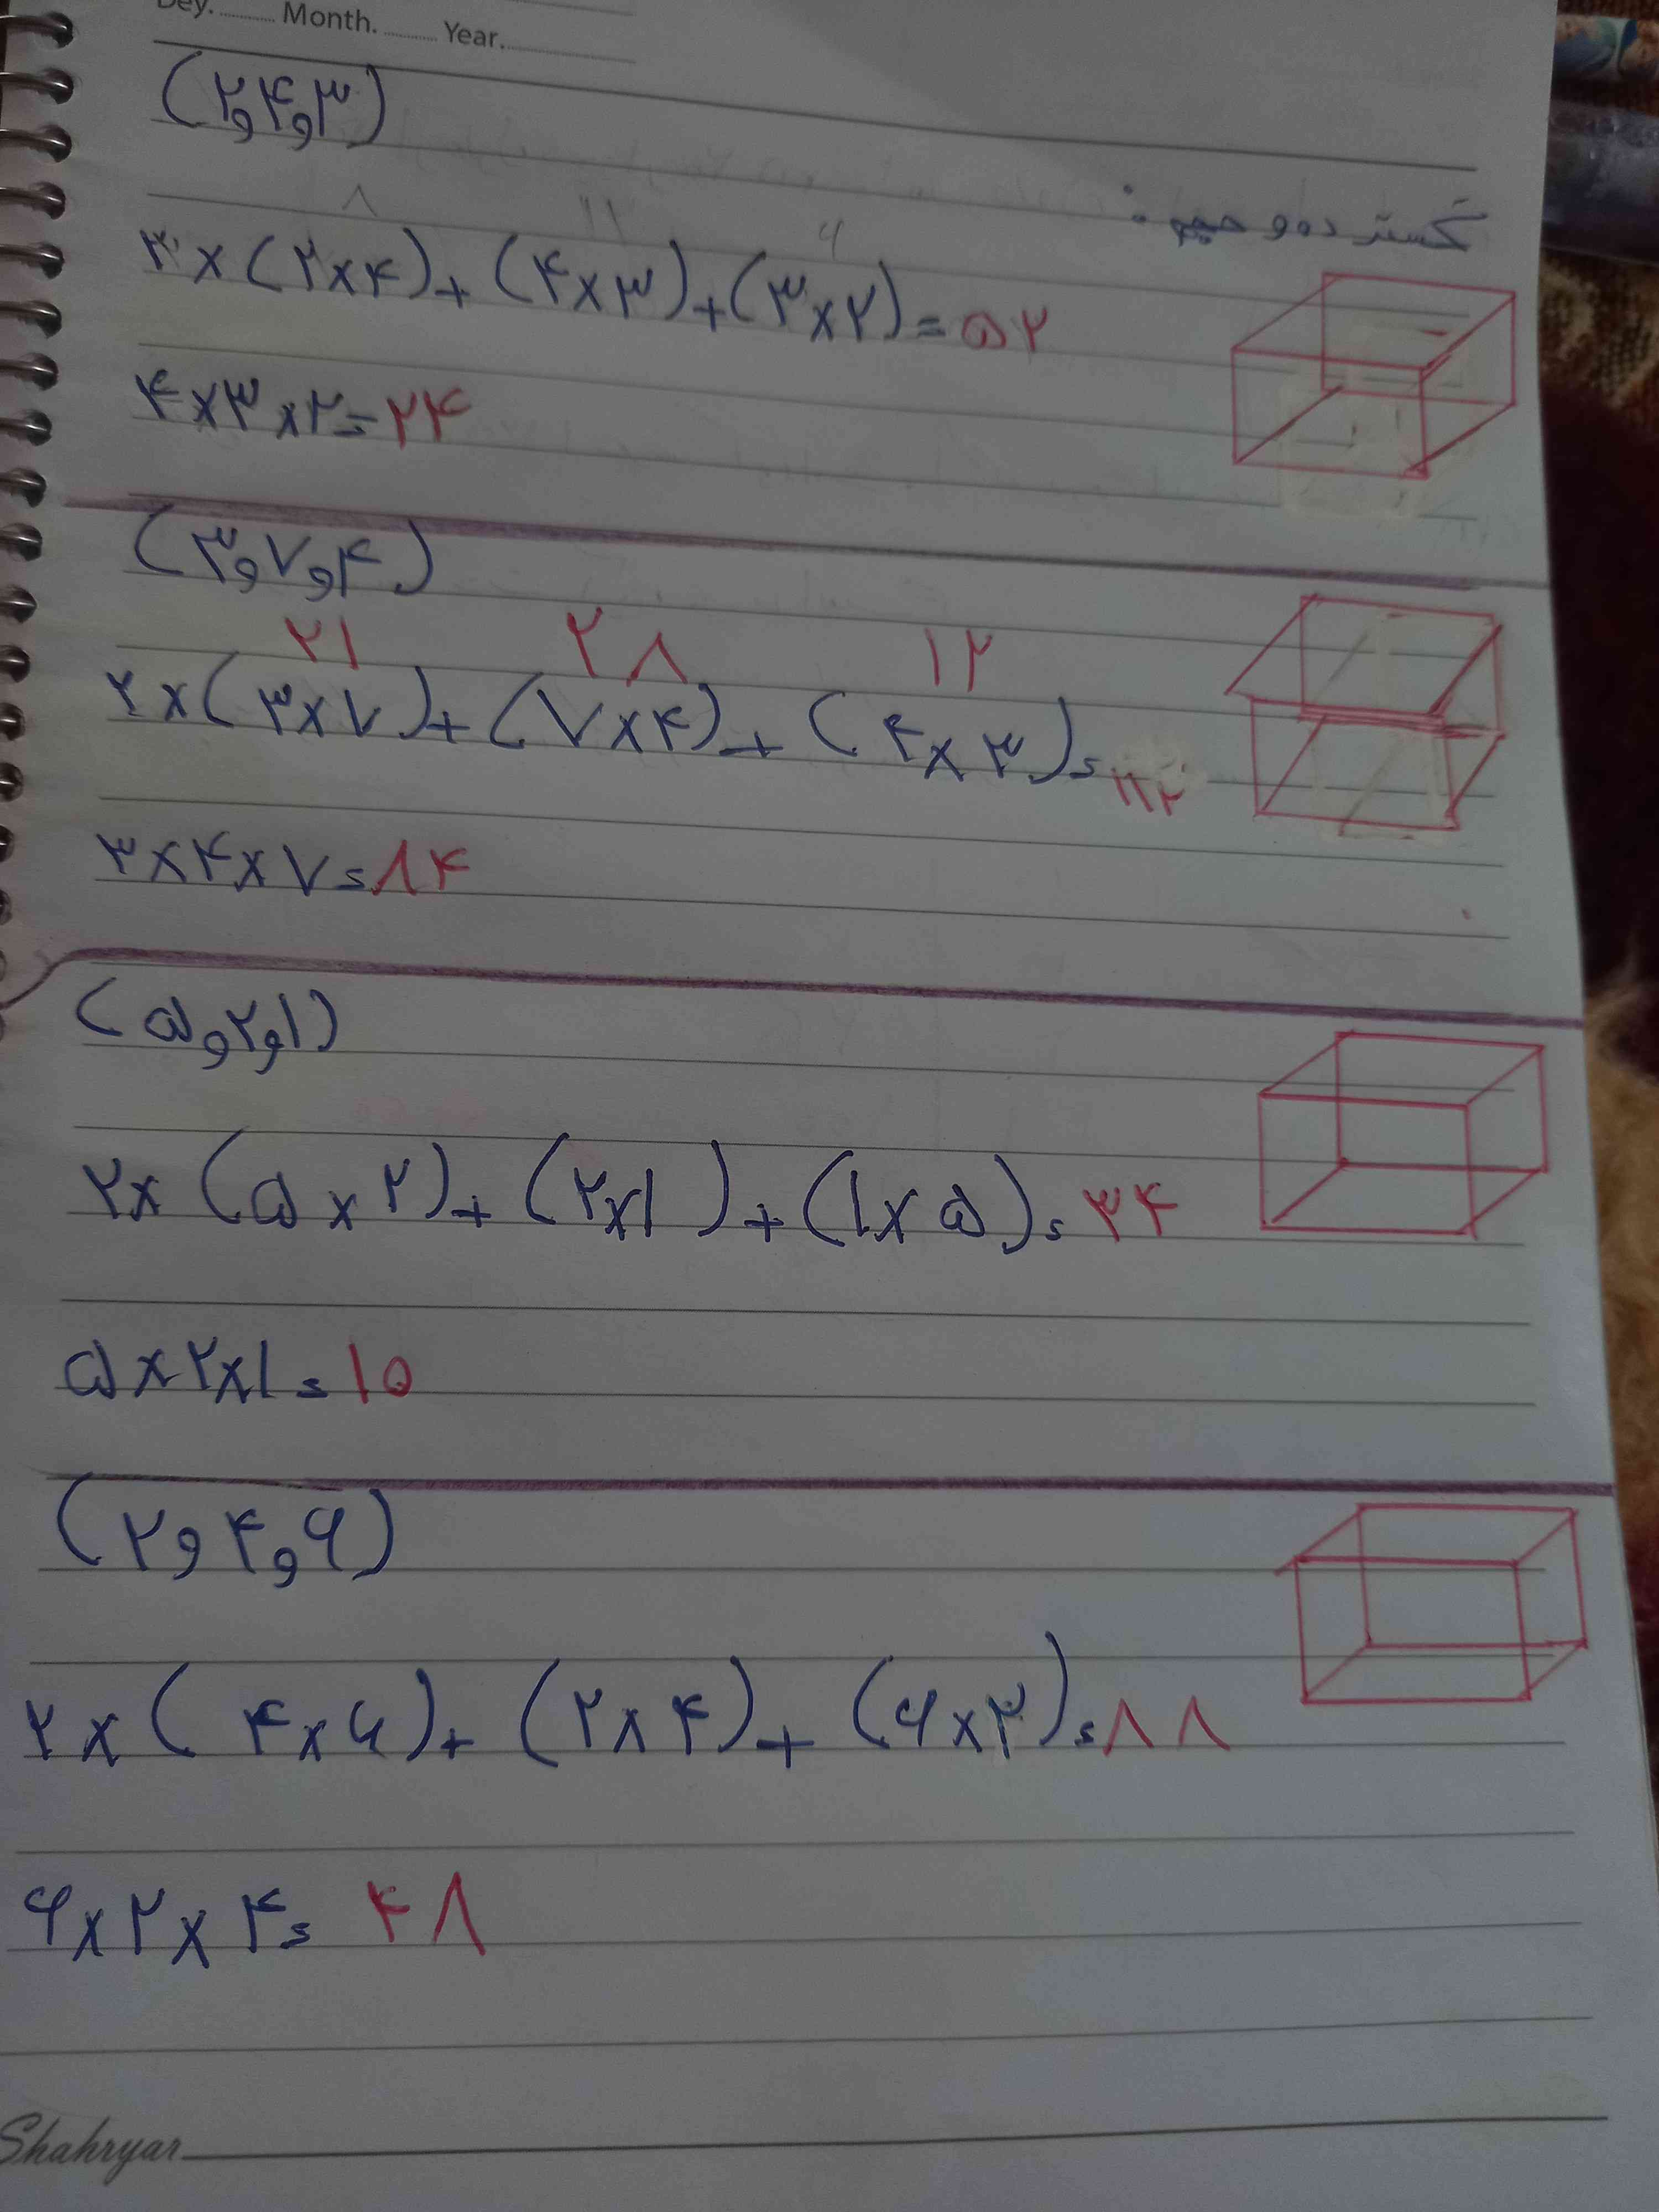 Dey. Month. Year.
(۲و۴و۳)
گسترده و حجم :
۸ ۱۲ ۶
۲×(۲×۴)+(۴×۳)+(۳×۲)=۵۲
۴×۳×۲=۲۴
(۳و۷و۴)
۲۱ ۲۸ ۱۲
۲×(۳×۷)+(۷×۴)+(۴×۳)=۱۲۲
۳×۴×۷=۸۴
(۵و۲و۱)
۲×(۵×۲)+(۲×۱)+(۱×۵)=۳۴
۵×۲×۱=۱۰
(۲و۴و۶)
۲×(۴×۶)+(۲×۴)+(۶×۲)=۸۸
۶×۲×۴=۴۸
Shahryar